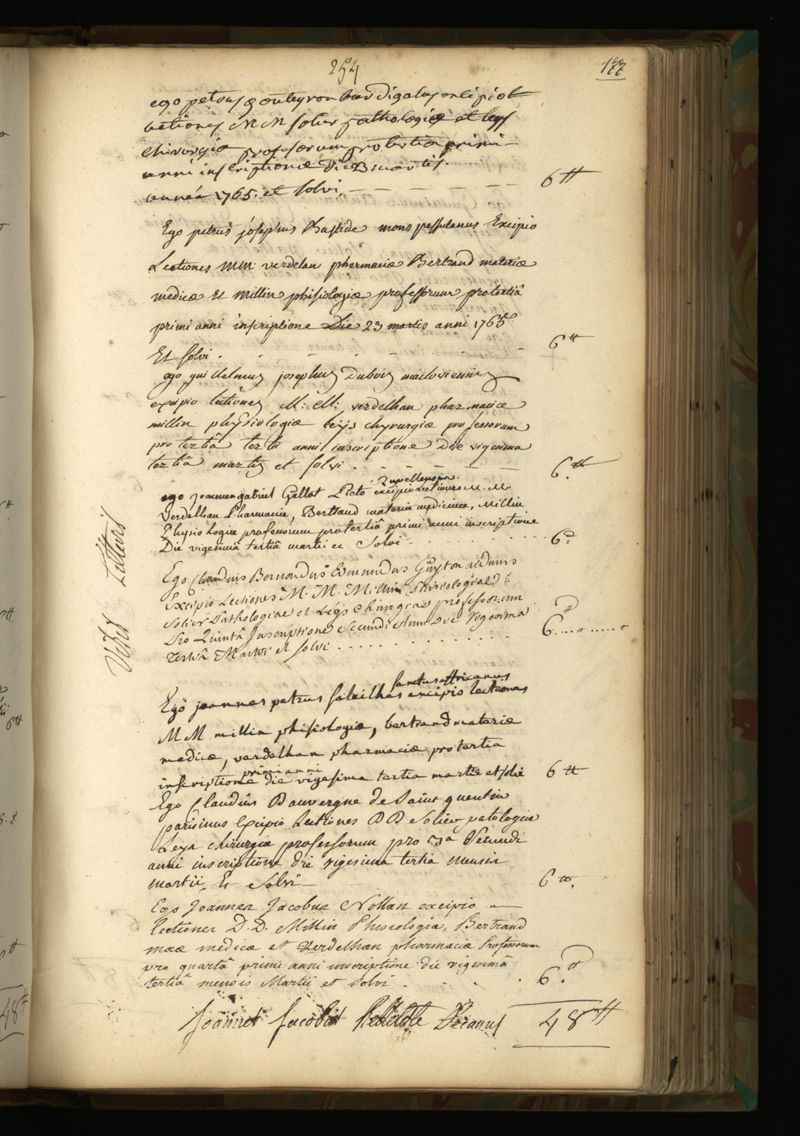 254
177
ego petrus burdigalus excipio
lectiones M M solier pathologiæ et leys
chirurgiæ professorum pro tertia primi
anni inscriptione die 23 martis
anni 1765. et solvi. 6 ₶
Ego petrus josephus Bastide monspessulanus Excipio
Lectiones MM verdelan pharmaciæ Bertrand materiæ
medicæ Et Millin phisiologiæ professorum pro tertiâ
primi anni inscriptione Die 23 martis anni 1765
Et solvi. 6 ₶
ego guillelmus josephus Dubois macloviensis
excipio lectiones M: M: verdelhan pharmaciæ
millin physiologiæ leys chyrurgiæ professorum
pro tertiâ tertii anni inscriptione die vigesima
tertia martis et solvi. 6 ₶
rupellensis
ego joannes gabriel Gallot excipio Lectiones M. M.
Verdelhan Pharmaciæ, Bertrand materia medicinæ, Millin
Physiologiæ professorum pro tertiâ primi anni inscriptione
Die vigesimâ tertiâ martii et Solvi 6
Ego Claudius Bernardus Edmundus Guyton æduus
Excipio Lectiones M. M. Millin Phisiologiæ
Solier Pathologiæ et Leys Chirurgiæ professorum
Pro Quintâ Inscriptione Secundi Anni Die Vigesima
Tertiâ Martii et solvi 6
Visis Litteris
sanctus africanus
Ego joannes petrus saleilhes excipio lectiones
M M millin phisiologiæ, bertrand materiæ
medicæ, verdelhan pharmaciæ pro tertia
primi anni
inscriptione die vigesima tertia martii et solvi 6 ₶
Ego Claudius Dauvergne de Saint quentin
parisinus Excipio Lectiones D D Solier patologiæ
Leys chirurgiæ professorum pro 3a Secundi
anni inscriptione die vigesima tertia mensis
martii, Et Solvi 6 ₶.
Ego Joannes Jacobus Nollan excipio
lectiones D. D. Millin Phisiologia, Bertrand
maæ medicæ et Verdelhan pharmaciæ Professorum
pro quartâ primi anni inscriptione die vigesimâ
tertiâ mensis Martii et solvi 6.
Joannes Jacobus Decanus 48 ₶